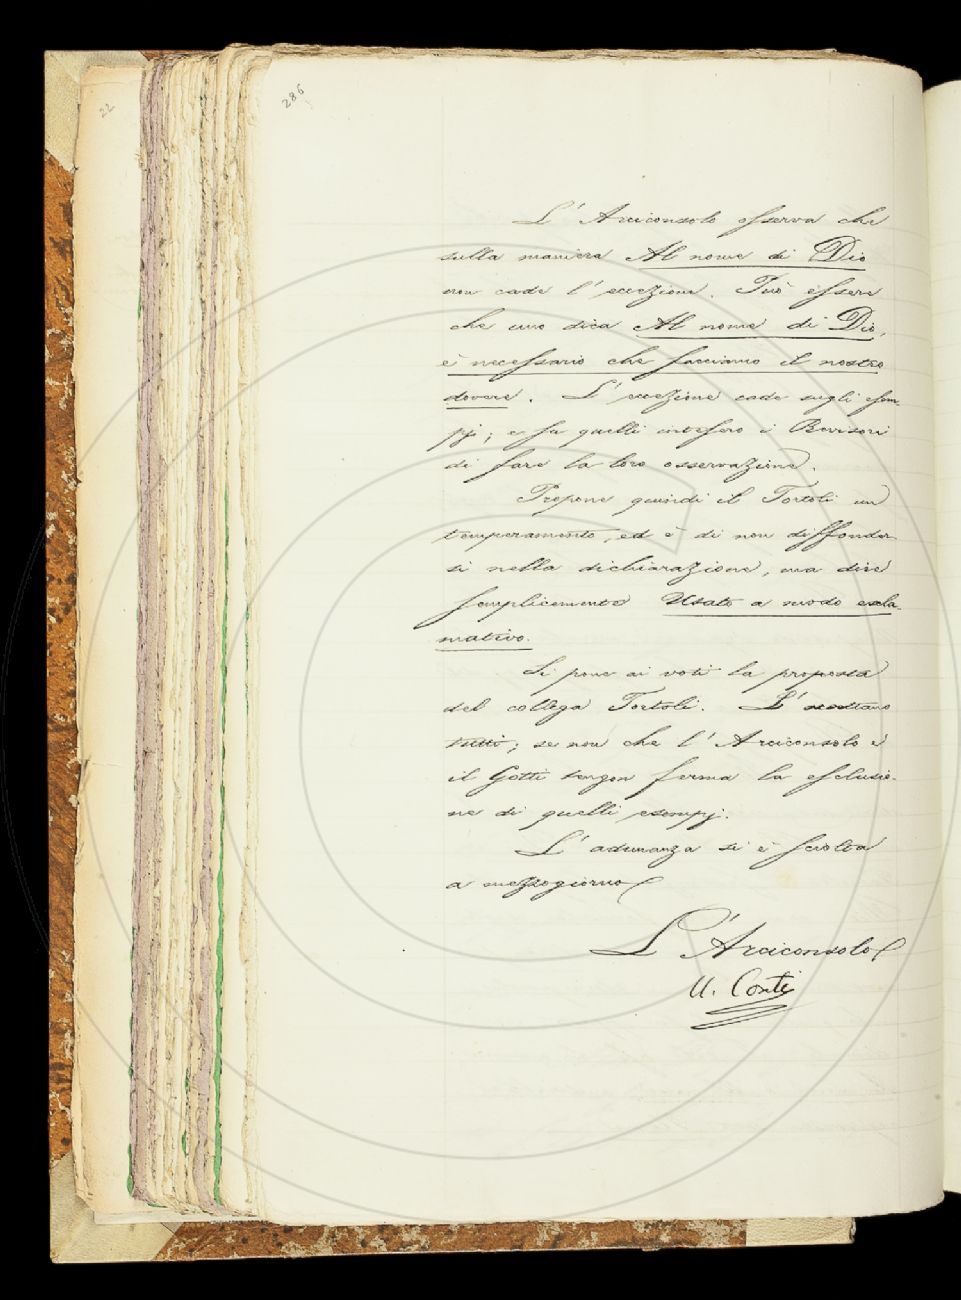 22
286
L'Arciconsolo osserva che
sulla maniera Al nome di Dio
non cade l'eccezione. Può essere
che uno dica Al nome di Dio,
è necessario che facciamo il nostro
dovere. L'eccezione cade sugli esem-
pj; e su quelli intesero i Revisori
di fare la loro osservazione.
Propone quindi il Tortoli un
temperamento, ed è di non diffonder-
si nella dichiarazione, ma dire
semplicemente Usato a modo escla-
mativo.
Si pone ai voti la proposta
del collega Tortoli. L'accettano
tutti; se non che l'Arciconsolo e
il Gotti tengon ferma la esclusio-
ne di quelli esempj.
L'adunanza si è sciolta
a mezzogiorno
L'Arciconsolo
A. Conti